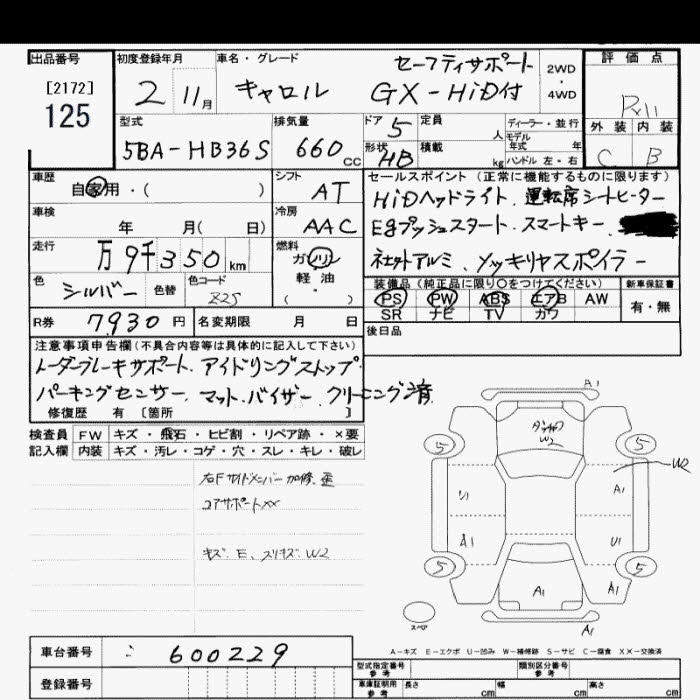 出品番号
[2172]
125
初度登録年月
2 11月
車名・グレード
キャロル
セーフティサポート
GX-HiD付
2WD
・
4WD
評価点
外装 内装
C B
型式
5BA-HB36S
排気量
660 cc
ドア 5
定員 人
形状 HB
積載 kg
ディーラー・並行
モデル年式 年式
ハンドル 左・右
車歴
自家用・( )
シフト
AT
車検
年 月( 日)
冷房
AAC
走行
万 9千350km
燃料
ガソリン
軽油
( )
色
シルバー
色替
色コード
Z2S
R券 7,930 円
名変期限 月 日
セールスポイント(正常に機能するものに限ります)
HiDヘッドライト. 運転席シートヒーター
Egプッシュスタート. スマートキー.
社外アルミ. メッキリヤスポイラー
装備品(純正品に限り○をつけてください)
PS PW ABS エアB AW
SR ナビ TV カワ
新車保証書
有・無
後日品
注意事項申告欄(不具合内容等は具体的に記入して下さい)
レーダーブレーキサポート. アイドリングストップ.
パーキングセンサー. マット.バイザー. クリーニング済
修復歴 有 [箇所 ]
検査員記入欄
FW キズ・飛石・ヒビ割・リペア跡・×要
内装 キズ・汚レ・コゲ・穴・スレ・キレ・破レ
右Fサイドメンバー加修、歪
コアサポートXX
キズ、E、スリキズ、W2
A1
W2
5 5
W2
リ1 A1
A1 U1
5 5
A1 A1
A1
スペア
A-キズ E-エクボ U-凹み W-補修跡 S-サビ C-腐食 XX-交換済
車台番号 600229
登録番号
型式指定番号 参考
類別区分番号 参考
車庫証明用 参考
長さ cm
幅 cm
高さ cm